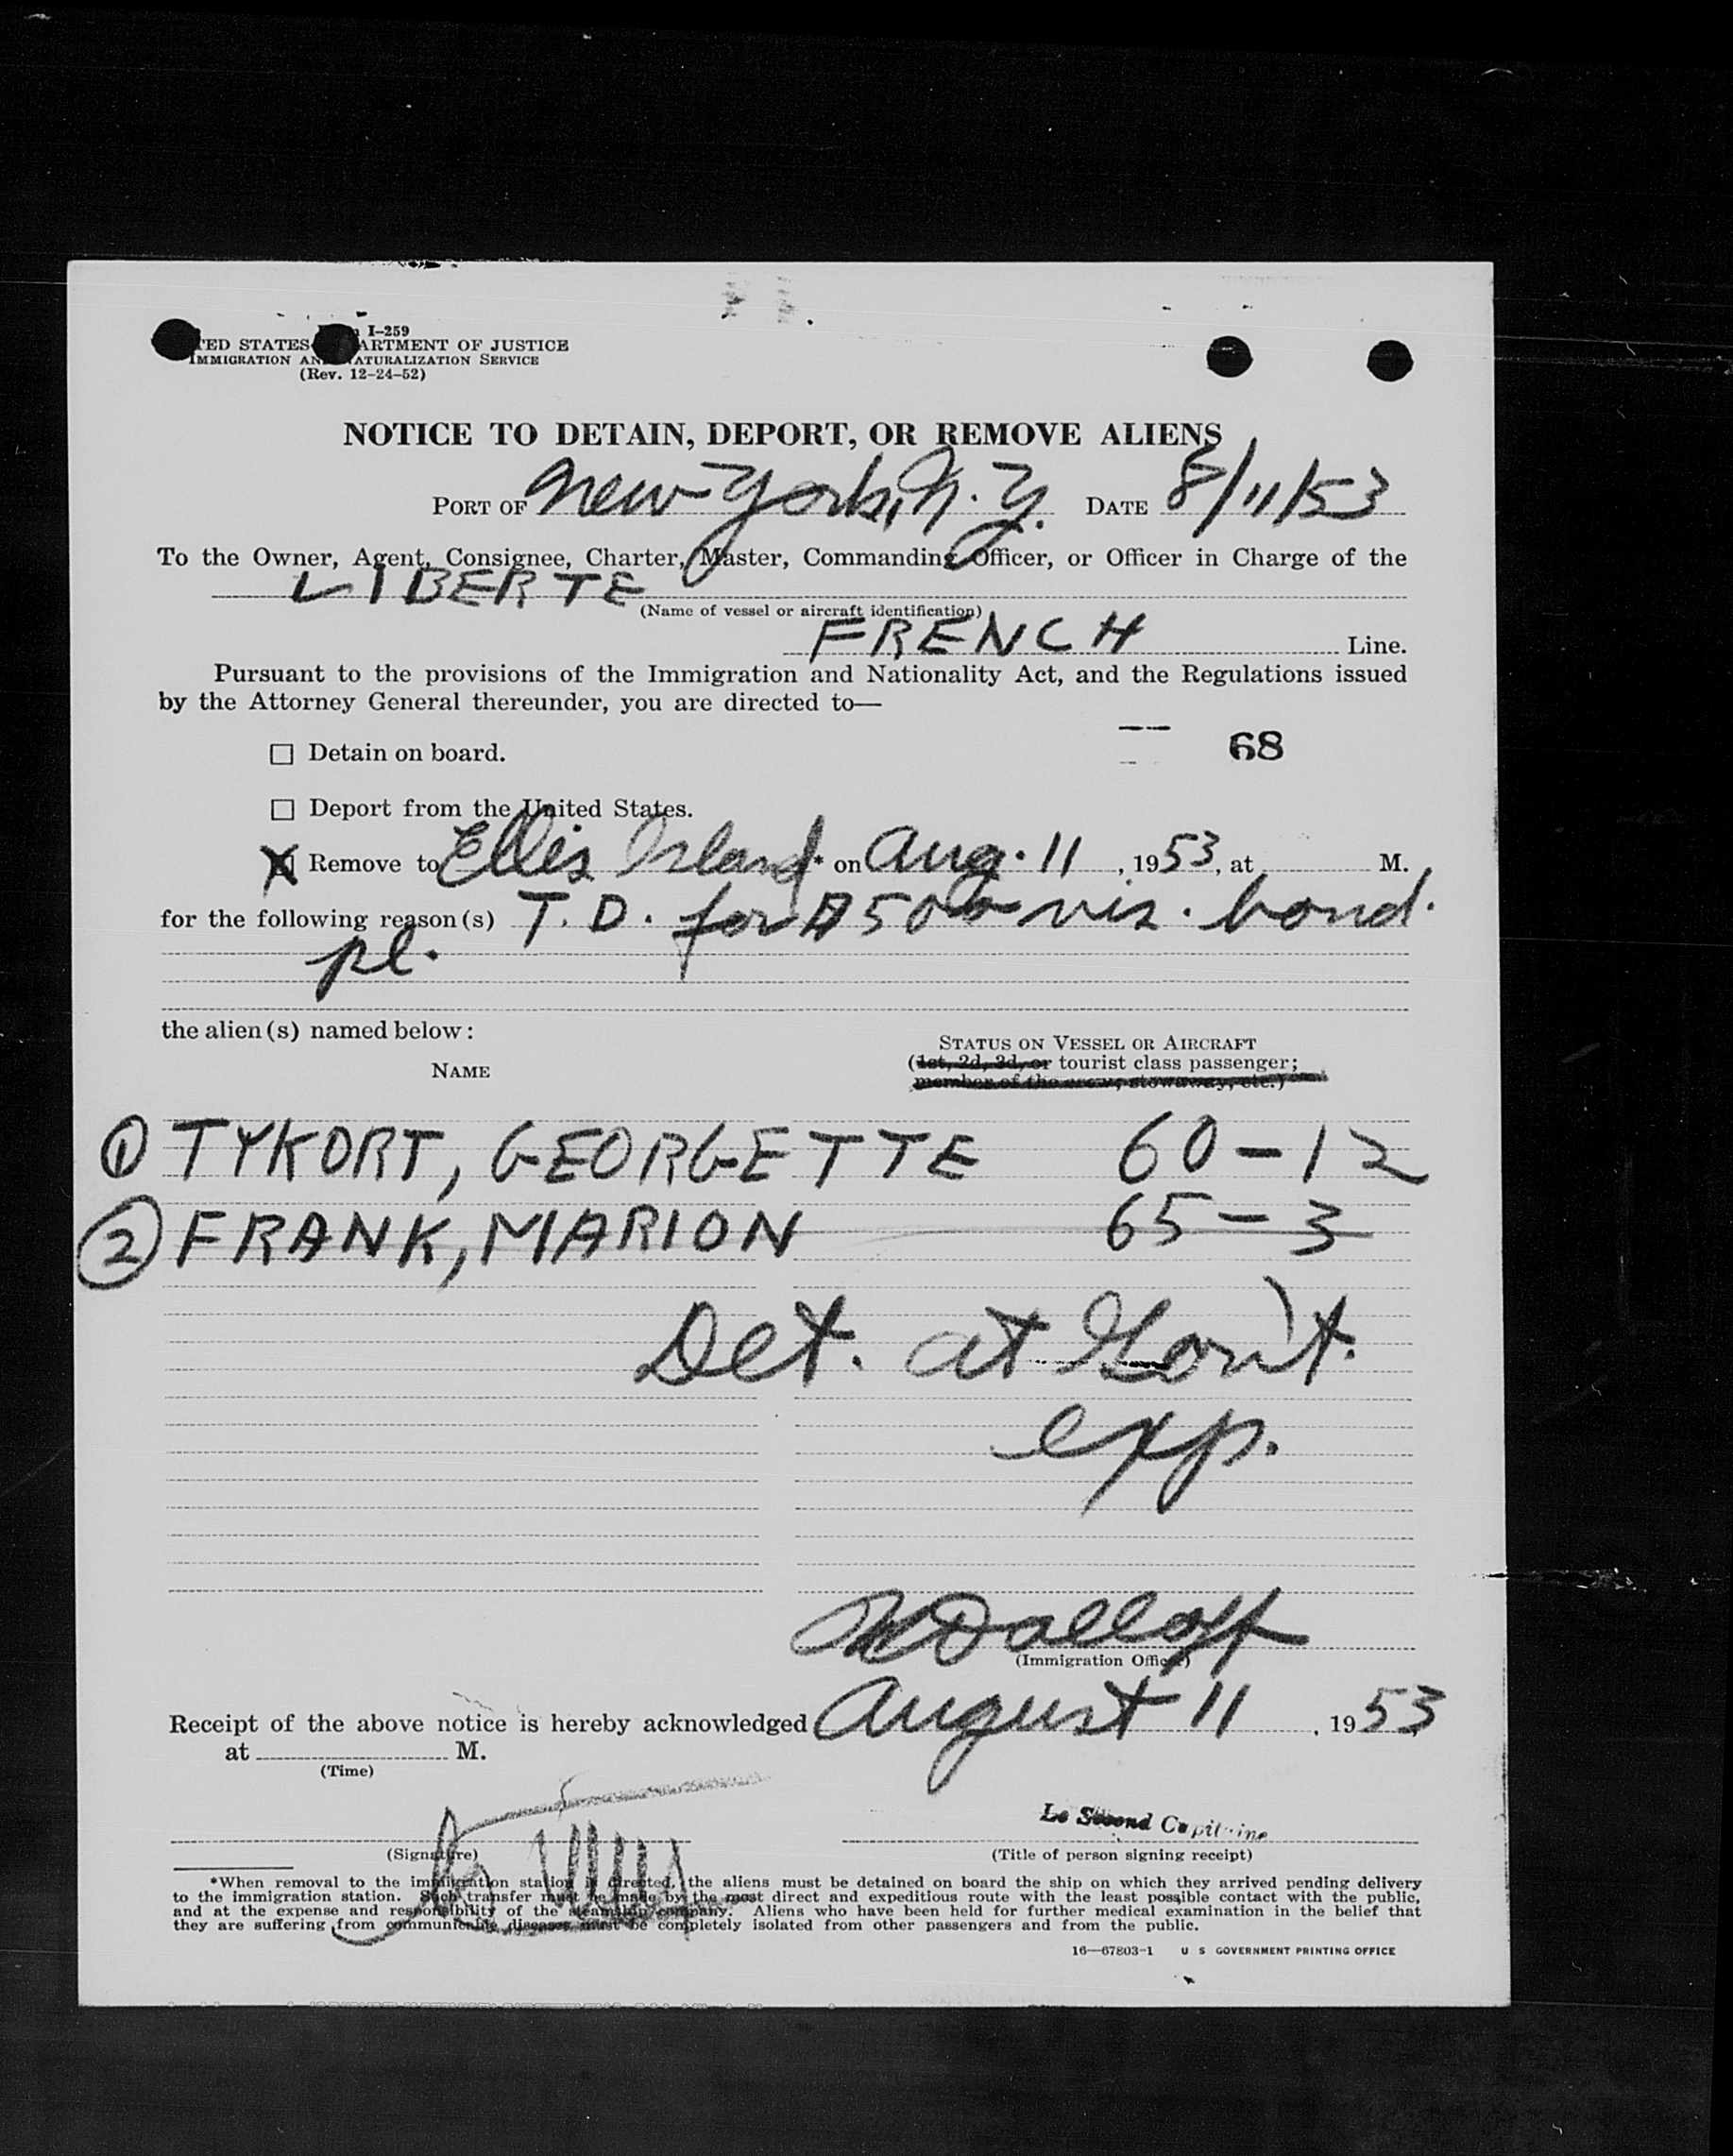 I-259
TED STATES ARTMENT OF JUSTICE
IMMIGRATION AN ATURALIZATION SERVICE
(Rev. 12-24-52)
NOTICE TO DETAIN, DEPORT, OR REMOVE ALIENS
PORT OF New York, N.Y. DATE 8/11/53
To the Owner, Agent, Consignee, Charter, Master, Commanding Officer, or Officer in Charge of the
LIBERTE
(Name of vessel or aircraft identification)
FRENCH Line.
Pursuant to the provisions of the Immigration and Nationality Act, and the Regulations issued
by the Attorney General thereunder, you are directed to—
☐ Detain on board.
68
☐ Deport from the United States.
☒ Remove to Ellis Island * on Aug. 11, 1953, at M.
for the following reason(s) T.D. for $500 vis. bond.
pl.
the alien(s) named below:
STATUS ON VESSEL OR AIRCRAFT
NAME
(1st, 2d, 3d, or tourist class passenger;
member of the crew; stowaway, etc.)
① TYKORT, GEORGETTE 60-12
② FRANK, MARION 65-3
Det. at Gov't.
exp.
(Immigration Officer)
Receipt of the above notice is hereby acknowledged August 11, 1953
at M.
(Time)
Le Second Capitaine
(Signature)
(Title of person signing receipt)
*When removal to the immigration station is directed, the aliens must be detained on board the ship on which they arrived pending delivery
to the immigration station. Such transfer must be made by the most direct and expeditious route with the least possible contact with the public,
and at the expense and responsibility of the steamship company. Aliens who have been held for further medical examination in the belief that
they are suffering from communicable diseases must be completely isolated from other passengers and from the public.
16—67803-1 U S GOVERNMENT PRINTING OFFICE